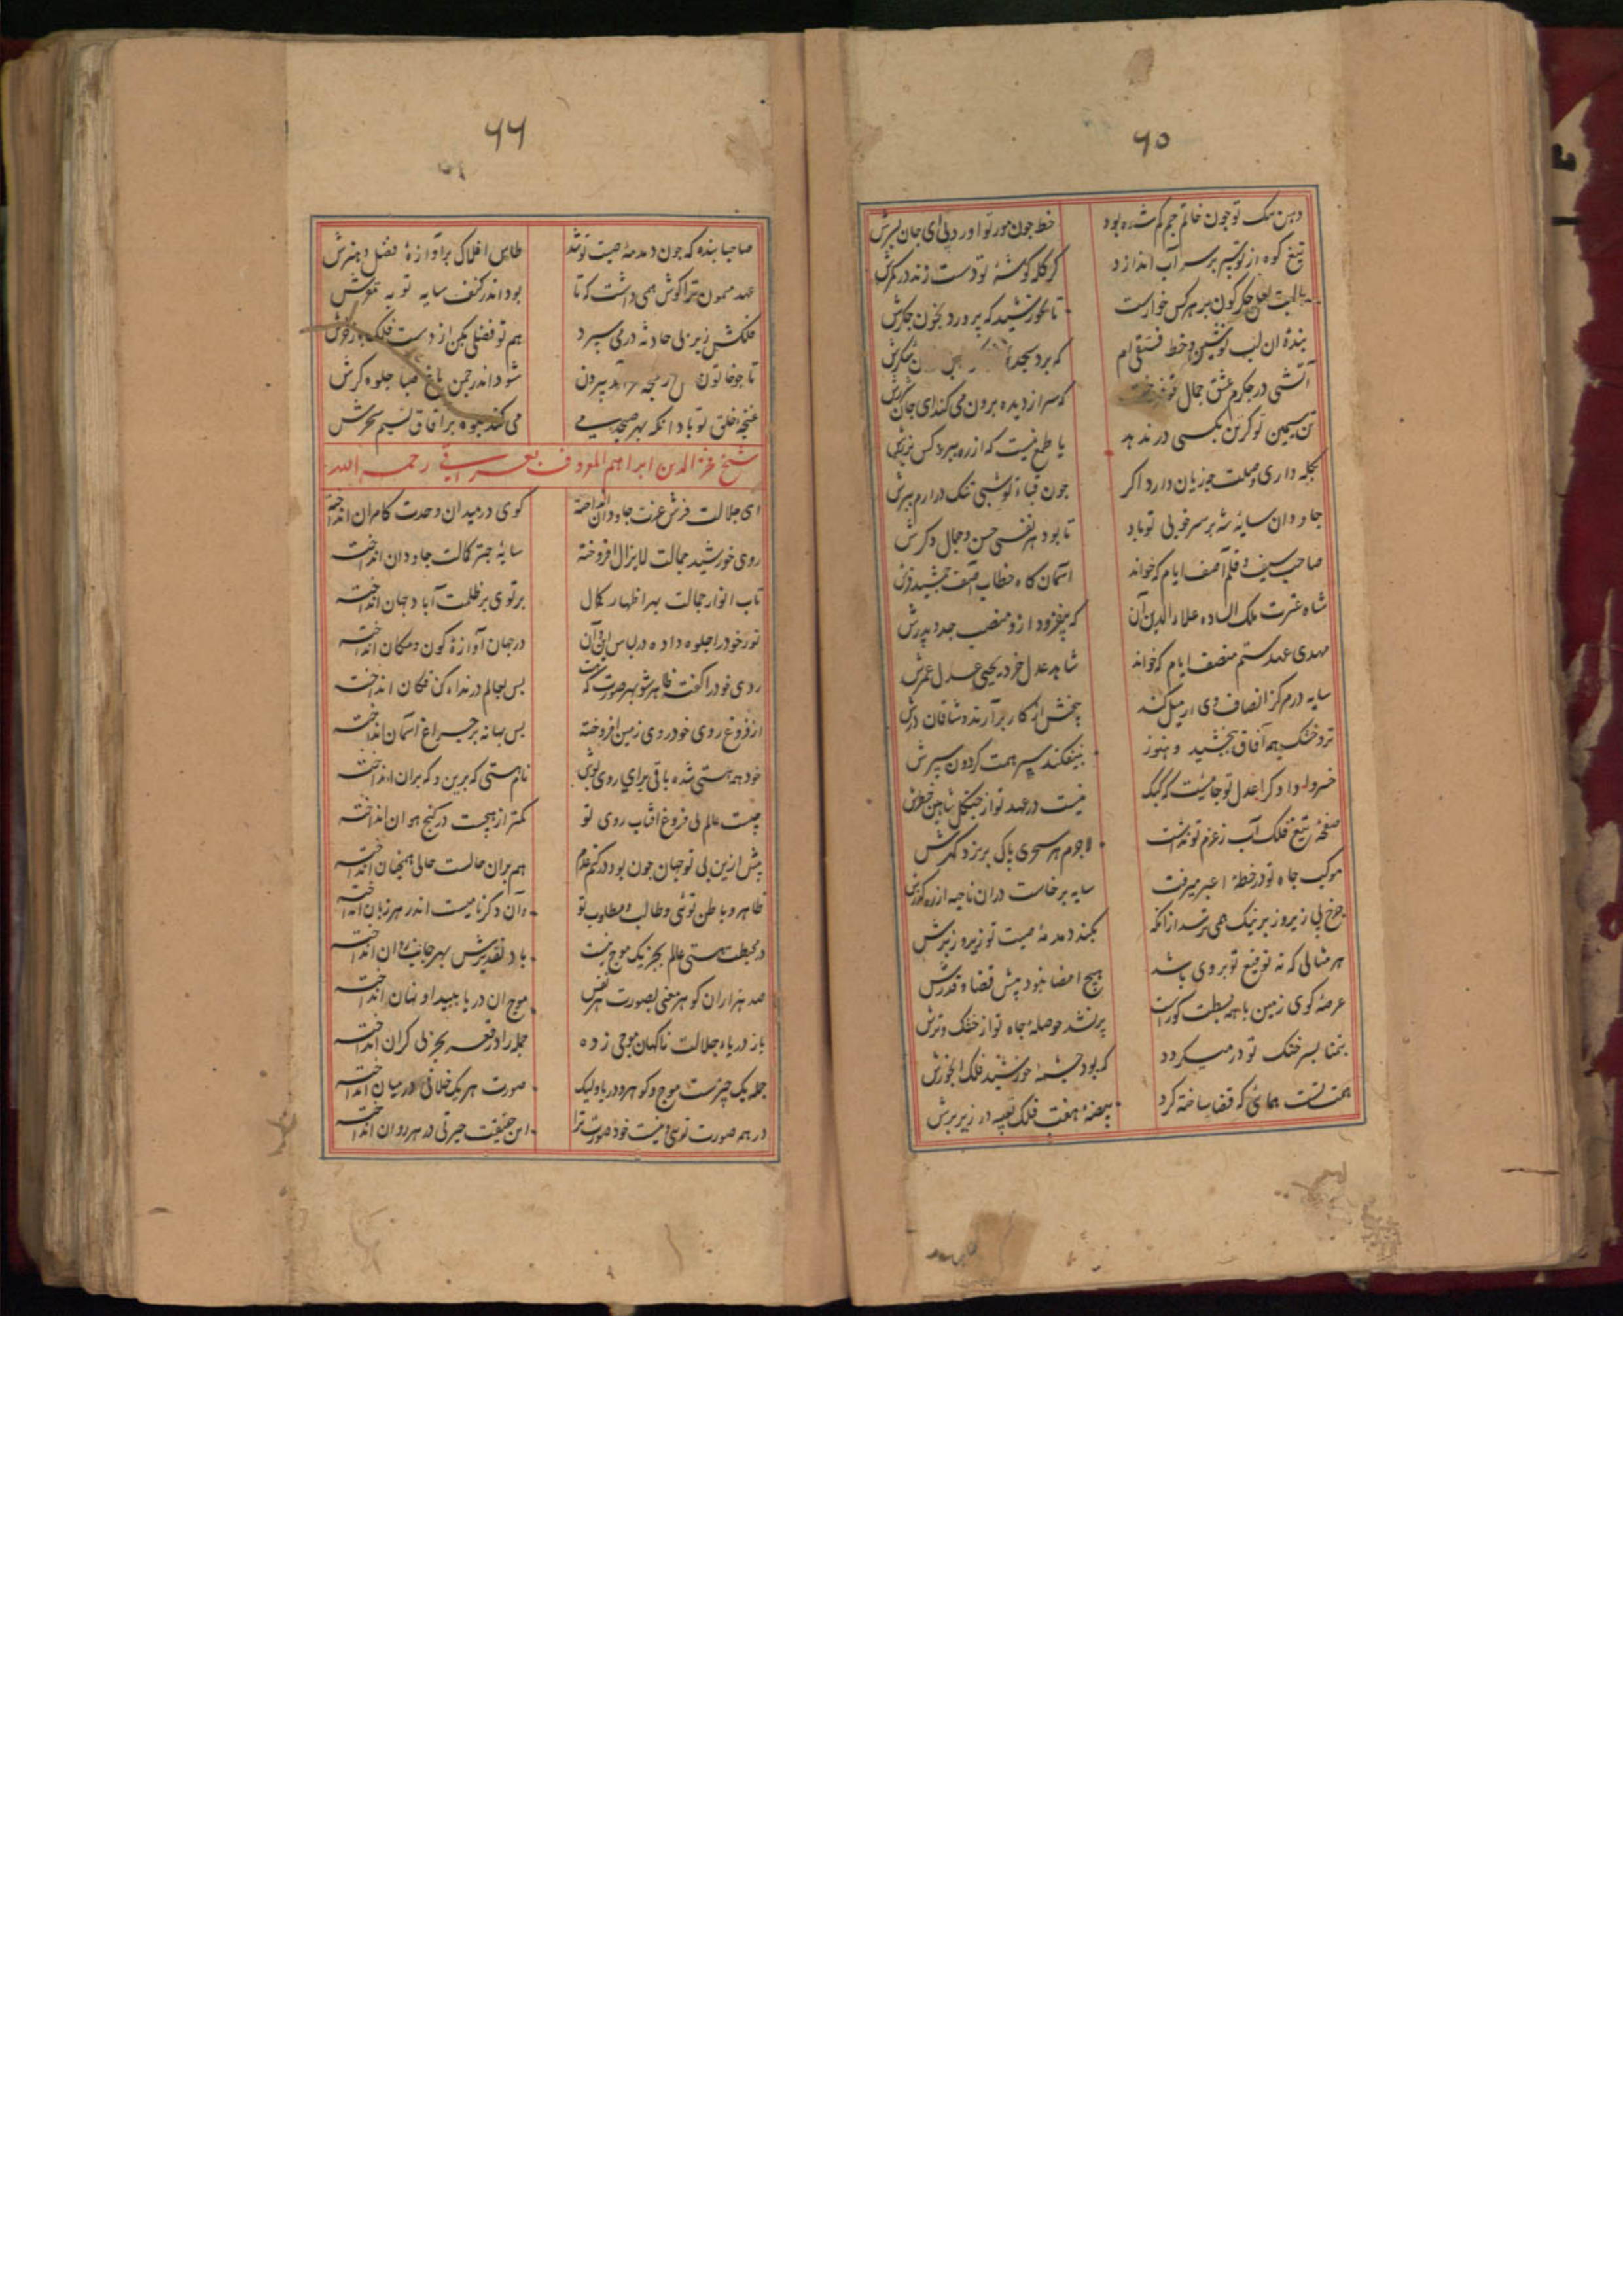 ۶۵
دهن تنک تو چون خاتم جم کم شده بود خط چون مور تو اورد پی ای جان بسرش
تیغ کوه از تو سپر بر سر آب اندازد کر کله کوشهٔ تو دست زند در کمرش
بالبت لعل جکر کون بر هر کس خوارست تا خورشید که پرورد بخون جکرش
بندهٔ ان لب نوشین و خط فستقی ام که برد
آتشی در جکرم عشق جمال تو که سر از دیده برون می کند ای جان شررش
تن سیمین تو کر تن بکسی در ندهد یا طمع نیست که از ره ببرد کس بزرش
بجله داری وصلت چه زیان دارد اکر چون قباء تو شبی تنک درارم ببرش
جاودان سایهٔ شه بر سر خوبی تو باد تا بود هر نفسی حسن و جمال دکرش
صاحب سیف و قلم آصف ایام که خواند آسمان کاه خطاب آصف جمشید فرش
شاه عترت ملک الساده علاء الدین آن که بیفزود ازو منصب جد و پدرش
مهدی عهد ستم منصف ایام که خواند شاهد عدل خرد یحیی عدل عمرش
سایه در مرکز انصاف وی ار میل کند بیخش از کار برآرند و شاقان درش
تر و خشک همه آفاق ببخشید و هنوز بنفکند سپر همت کردون سپرش
خسروا دادکرا عدل تو جائیست که کبک نیست در عهد تو از چنکل شاهین خطرش
صفحهٔ تیغ فلک آب ز عزم تو نداشت لاجرم هر سحری پاک بریزد کهرش
موکب جاه تو در خطهٔ اغبر میرفت سایه برخاست دران ناحیه از ره کذرش
چرخ بی زیر و زبر نیک همی ترسد ازانکه بکند دمدمهٔ هیبت تو زیر و زبرش
هر مثالی که نه توقیع تو بر وی باشد هیچ امضا نبود پیش قضا و قدرش
عرصهٔ کوی زمین با همه بسطت کوراست پر نشد حوصلهٔ جاه تو از خشک و ترش
بتمنا بسر خنک تو در میکردد که بود چشمهٔ خورشید فلک آبخورش
همت تست همای که قضا ساخته کرد بیضهٔ هفت فلک تعبیه در زیر پرش
۶۶
صاحبا بنده که چون دمدمهٔ صیت تو شد طاس افلاک پر آوازهٔ فضل و هنرش
عهد میمون ترا کوش همی داشت که تا بود اندر کنف سایه تو به مقرش
فلکش زیر پی حادثه در می سپرد هم تو فضلی بکن از دست فلک باز خرش
تا چو خاتون بیرون شود اندر چمن باغ صبا جلوه کرش
غنچه خلق تو باد انکه بهر صبحدمی می کند جلوه بر آفاق نسیم سحرش
شیخ فخر الدین ابراهیم المعروف بعراقی رحمه الله
ای جلالت فرش عزت جاودان انداخته کوی در میدان وحدت کامران انداخته
روی خورشید جمالت لایزال افروخته سایهٔ چتر کمالت جاودان انداخته
تاب انوار جمالت بهر اظهار کمال پرتوی بر ظلمت آباد جهان انداخته
نور خود را جلوه داده در لباس این و آن در جهان آوازهٔ کون و مکان انداخته
روی خود را کفته ظاهر شو بهر صورت که هست پس بعالم در نداء کن فکان انداخته
از فروغ روی خود روی زمین افروخته پس بهانه بر چراغ آسمان انداخته
خود همه هستی شده باقی برای روی پوش نام هستی که برین و که بران انداخته
چیست عالم بی فروغ آفتاب روی تو کمتر از هیچیست در کنج هوان انداخته
پیش ازین بی تو جهان چون بود در کتم عدم هم بران حالست حالی همچنان انداخته
ظاهر و باطن توئی و طالب و مطلوب تو وان دکر نامیست اندر هر زبان انداخته
در محیط هستی عالم بجز یک موج نیست باد تقدیرش بهر جانب روان انداخته
صد هزاران کوهر معنی بصورت هر نفس موج ان دریا پیدا و نهان انداخته
باز دریاء جلالت ناکهان موجی زده جمله را در قعر بحر بی کران انداخته
جمله یک چیزست موج و کوهر و دریا ولیک صورت هر یک خلافی در میان انداخته
در همه صورت توئی و نیست خود صورت ترا این حقیقت حیرتی در رهروان انداخته